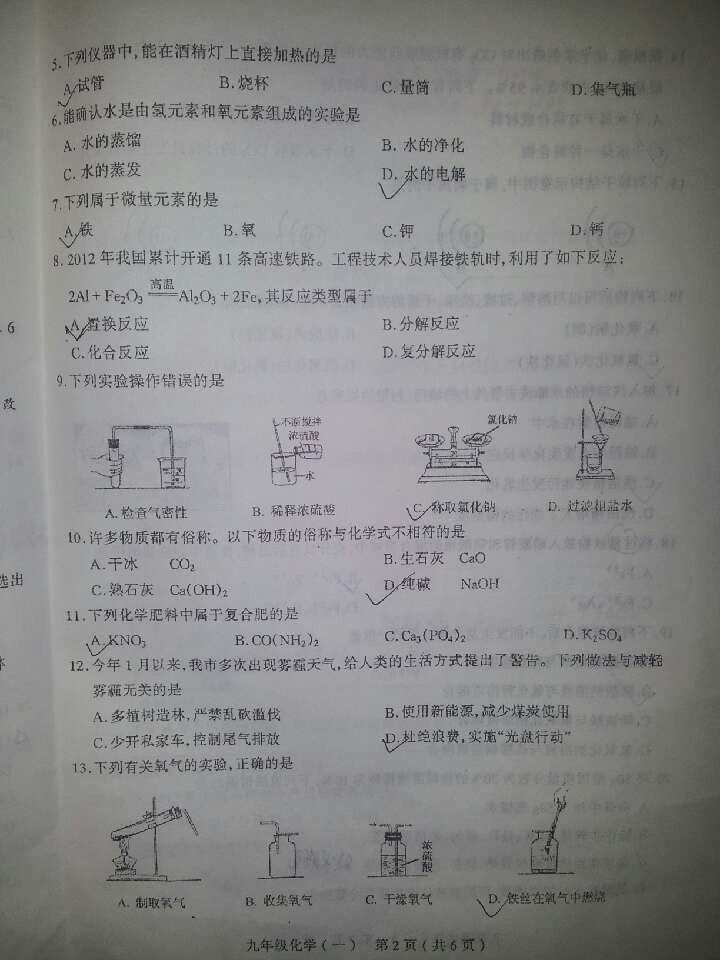 5.下列仪器中,能在酒精灯上直接加热的是
A.试管 B.烧杯 C.量筒 D.集气瓶
6.能确认水是由氢元素和氧元素组成的实验是
A. 水的蒸馏 B. 水的净化
C. 水的蒸发 D. 水的电解
7.下列属于微量元素的是
A.铁 B.氧 C.钾 D.钙
8. 2012年我国累计开通11条高速铁路。工程技术人员焊接铁轨时,利用了如下反应:
高温
2Al+Fe₂O₃══Al₂O₃+2Fe,其反应类型属于
6
A.置换反应 B.分解反应
C.化合反应 D.复分解反应
9.下列实验操作错误的是
改
不断搅拌
浓硫酸
水
氯化钠
A.检查气密性 B. 稀释浓硫酸 C. 称取氯化钠 D. 过滤粗盐水
10.许多物质都有俗称。以下物质的俗称与化学式不相符的是
A.干冰 CO₂ B.生石灰 CaO
选出
C.熟石灰 Ca(OH)₂ D.纯碱 NaOH
11.下列化学肥料中属于复合肥的是
A.KNO₃ B.CO(NH₂)₂ C.Ca₃(PO₄)₂ D.K₂SO₄
12.今年1月以来,我市多次出现雾霾天气,给人类的生活方式提出了警告。下列做法与减轻
雾霾无关的是
A.多植树造林,严禁乱砍滥伐 B.使用新能源,减少煤炭使用
C.少开私家车,控制尾气排放 D.杜绝浪费,实施“光盘行动”
13.下列有关氧气的实验,正确的是
浓硫酸
A. 制取氧气 B. 收集氧气 C. 干燥氧气 D. 铁丝在氧气中燃烧
九年级化学(一) 第2页(共6页)